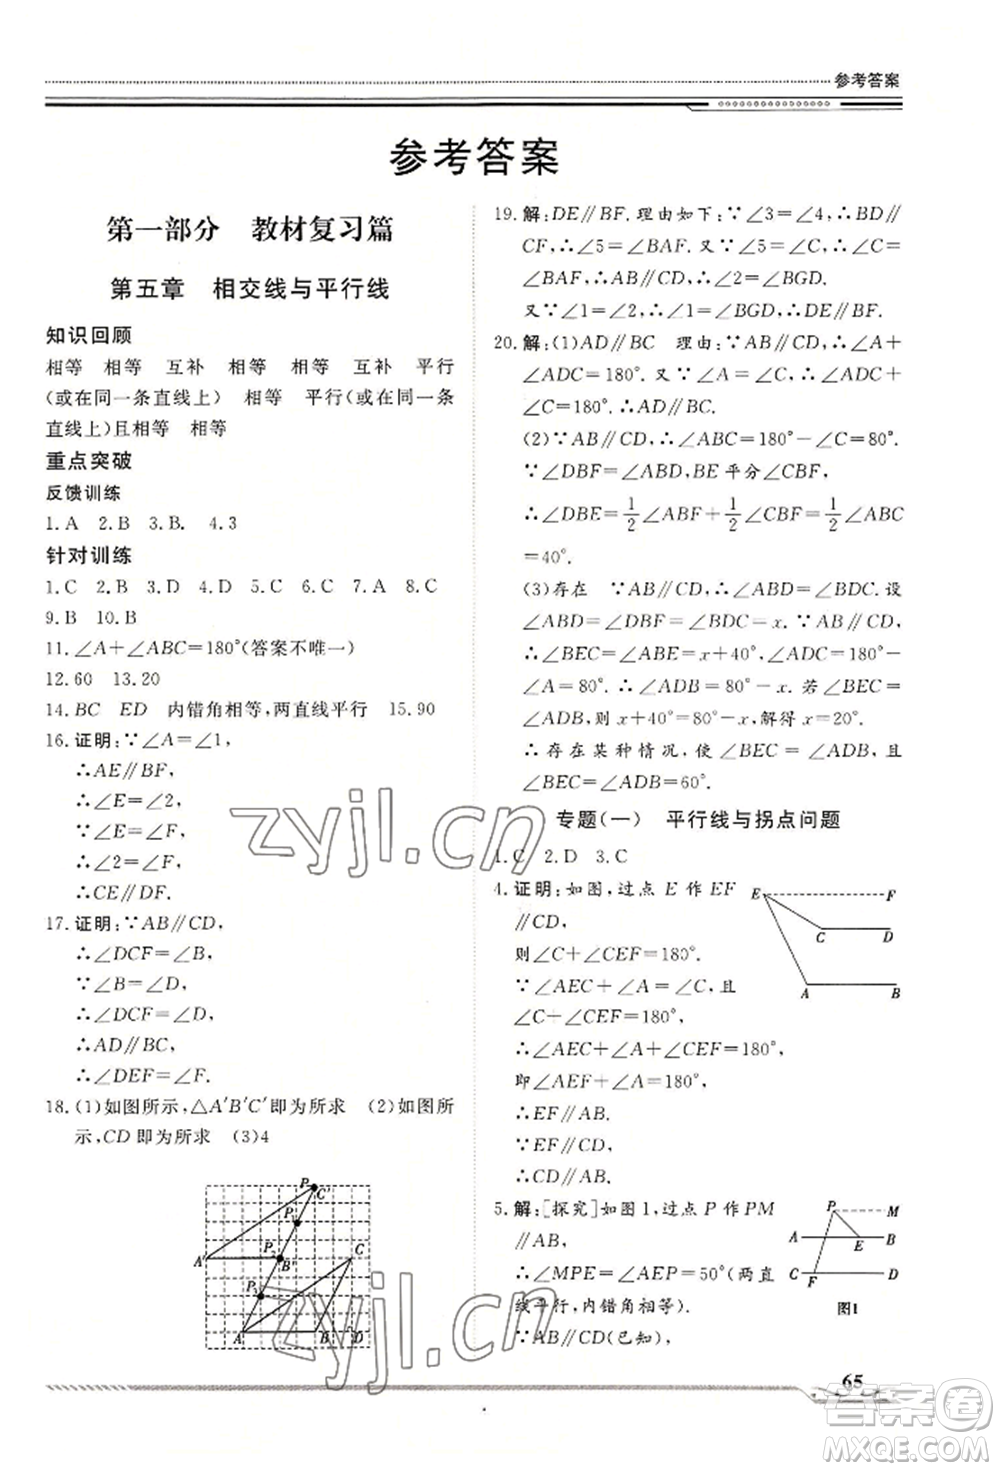 参考答案
参考答案
第一部分 教材复习篇
第五章 相交线与平行线
知识回顾
相等 相等 互补 相等 相等 互补 平行
(或在同一条直线上) 相等 平行(或在同一条
直线上)且相等 相等
重点突破
反馈训练
1.A 2.B 3.B. 4.3
针对训练
1.C 2.D 3.D 4.D 5.C 6.D 7.D 8.C
9.B 10.B
11.∠A+∠ABC=180°(答案不唯一)
12.60 13.20
14.BC ED 内错角相等,两直线平行 15.90
16.证明:∵∠A=∠1,
∴AE∥BF,
∴∠E=∠2,
∵∠E=∠F,
∴∠2=∠F,
∴CE∥DF.
17.证明:∵AB∥CD,
∴∠DCF=∠B,
∵∠B=∠D,
∴∠DCF=∠D,
∴AD∥BC,
∴∠E=∠F.
18.(1)如图所示,△A′B′C′即为所求 (2)如图所
示,CD即为所求 (3)4
P C′
P₁
A′ P₂ B′ C
P₃
A B D
19.解:DE∥BF.理由如下:∵∠3=∠4,∴BD∥
CF,∴∠5=∠BAF.又∵∠5=∠C,∴∠C=
∠BAF,∴AB∥CD,∴∠2=∠BGD.
又∵∠1=∠2,∴∠1=∠BGD,∴DE∥BF.
20.解:(1)AD∥BC 理由:∵AB∥CD,∴∠A+
∠ADC=180°.又∵∠A=∠C,∴∠ADC+
∠C=180°.∴AD∥BC.
(2)∵AB∥CD,∴∠ABC=180°-∠C=80°.
∵∠DBF=∠ABD,BE平分∠CBF,
∴∠DBE=1/2∠ABF+1/2∠CBF=1/2∠ABC
=40°.
(3)存在 ∵AB∥CD,∴∠ABD=∠BDC.设
∠ABD=∠DBF=∠BDC=x.∵AB∥CD,
∴∠BEC=∠ABE=x+40°,∠ADC=180°-
∠A=80°.∴∠ADB=80°-x.若∠BEC=
∠ADB,则x+40°=80°-x,解得x=20°.
∴存在某种情况,使∠BEC=∠ADB,
∠BEC=∠ADB=60°.
专题(一) 平行线与拐点问题
1.C 2.D 3.C
4.证明:如图,过点E作EF
∥CD,
则∠C+∠CEF=180°.
∵∠AEC+∠A=∠C,且
∠C+∠CEF=180°,
∴∠AEC+∠A+∠CEF=180°,
即∠AEF+∠A=180°,
∴EF∥AB.
∵EF∥CD,
∴CD∥AB.
E F
C D
A B
5.解:[探究]如图1,过点P作PM
∥AB,
∴∠MPE=∠AEP=50°(两直
线平行,内错角相等).
∵AB∥CD(已知),
P M
A E B
C F D
图1
65
zyjl.cn
zyjl.cn
答案圈
MXQE.COM